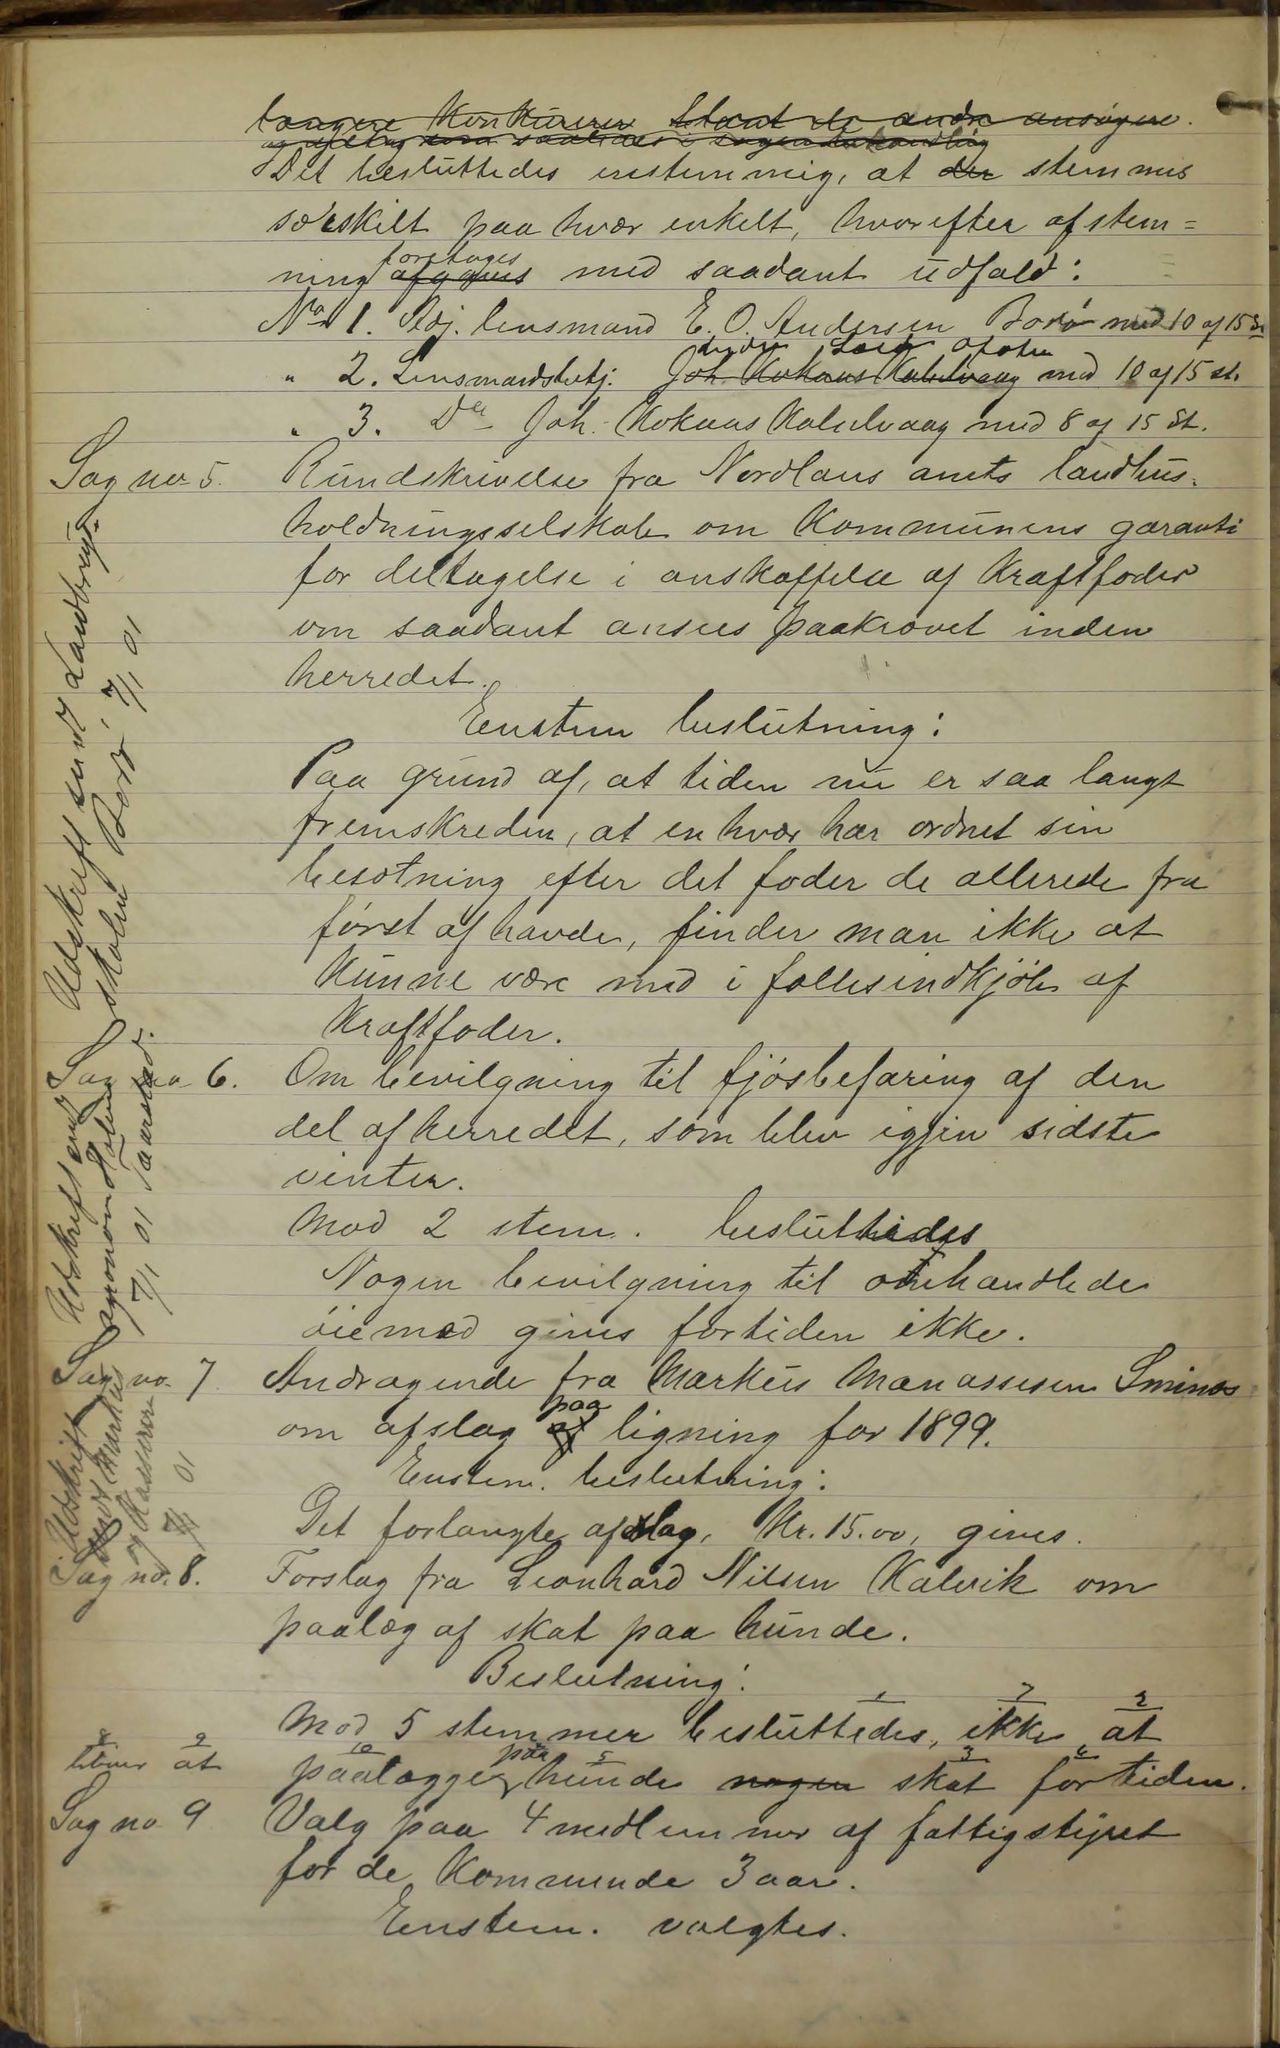 længere Konkurerer blant de andre ansøgere.
Det besluttedes enstemmig, at der stemmes
særskilt paa hver enkelt, hvorefter afstem=
foretages
ning afgives med saadant udfald:
No 1. Adj. lensmand E. O. Andersen Borø med 10 af 15 St
" 2. Lensmandsbetj. Joh. Kokaas Kalelvaag med 10 af 15 st.
" 3. Do Joh. Kokaas Kalelvaag med 8 af 15 St.
Sag no 5. Rundskrivelse fra Nordlans amts landhus-
holdningsselskab om Kommunens garanti
for deltagelse i anskaffelse af Kraftfoder
om saadant ansees paakrævet inden
herredet.
Enstem beslutning:
Paa grund af, at tiden nu er saa langt
fremskreden, at enhver har ordnet sin
besætning efter det foder de allerede fra
først af havde, finder man ikke at
Kunne være med i fællesindkjøb af
Kraftfoder.
Udskrift sendt Landbrugs-
skolen Bodø, 7/1 01
Sag no 6. Om bevilgning til fjøsbefaring af den
del af herredet, som blev igjen sidste
vinter.
Mod 2 stem. besluttedes
Nogen bevilgning til omhandlede
øiemed gives fortiden ikke.
Udskrift sendt
agronom Holen
7/1 01 Taarstad.
Sag no 7 Andragende fra Markus Manassesen Sminæs
paa
om afslag af ligning for 1899.
Enstem. beslutning:
Det forlangte afslag, Kr. 15.00, gives.
Udskrift
sendt Markus
og Kasserere
7/1 01
Sag no. 8. Forslag fra Leonhard Nilsen Kalvik om
paalæg af skat paa hunde.
Beslutning:
1 7 2
Mod 5 stemmer besluttedes, ikke at
8 9
at
10 paa 5 3 6
paalægge hunde nogen skat for tiden.
Sag no 9 Valg paa 4 medlemmer af fattigstyret
for de Kommende 3 aar.
Enstem. valgtes.